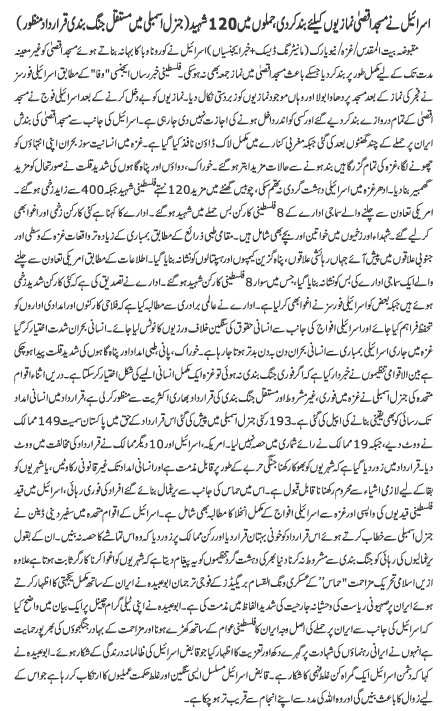 اسرائیل نے مسجد اقصیٰ نمازیوں کیلئے بند کر دی، حملوں میں 120 شہید (جنرل اسمبلی میں مستقل جنگ بندی قرارداد منظور)
مقبوضہ بیت المقدس/غزہ/نیویارک (مانیٹرنگ ڈیسک + خبر ایجنسیاں) اسرائیل نے کورونا وبا کا بہانہ بناتے ہوئے مسجد اقصیٰ کو غیر معینہ
مدت تک کے لیے مکمل طور پر بند کر دیا جسکے باعث مسجد اقصیٰ میں نماز جمعہ بھی نہ ہو سکی۔ فلسطینی خبر رساں ایجنسی ’’وفا‘‘ کے مطابق اسرائیلی فورسز
نے فجر کی نماز کے بعد مسجد پر دھاوا بولا اور وہاں موجود نمازیوں کو زبردستی نکال دیا۔ نمازیوں کو بے دخل کرنے کے بعد اسرائیلی فوج نے مسجد
کے تمام دروازے بند کر دیے گئے اور کسی کو اندر داخل ہونے کی اجازت نہیں دی جا رہی ہے۔ اسرائیل کی جانب سے مسجد اقصیٰ کی بندش
ایران پر حملے کے چند گھنٹوں بعد کی گئی جبکہ مغربی کنارے میں مکمل لاک ڈاؤن نافذ کیا گیا ہے۔ غزہ میں انسانیت سوز بحران اپنی انتہاؤں کو
چھونے لگا، غزہ کی تمام گزرگاہیں بند ہونے سے حالات مزید ابتر ہو گئے۔ خوراک، دواؤں اور پناہ گاہوں کی شدید قلت نے صورتحال کو مزید
گھمبیر بنا دیا۔ ادھر غزہ میں اسرائیلی دہشت گردی نہ تھم سکی، چوبیس گھنٹے میں مزید 120 نہتے فلسطینی شہید جبکہ 400 سے زاید زخمی ہو گئے۔
امریکی تعاون سے چلنے والے سماجی ادارے کے 8 فلسطینی کارکن بس حملے میں شہید ہو گئے۔ ادارے کا کہنا ہے کئی کارکن زخمی اور اغوا بھی
کر لیے گئے۔ شہداء اور زخمیوں میں خواتین اور بچے بھی شامل ہیں۔ مقامی طبی ذرائع کے مطابق بمباری کے زیادہ تر واقعات غزہ کے وسطی اور
جنوبی علاقوں میں پیش آئے جہاں رہائشی علاقوں، پناہ گزین کیمپوں اور ہسپتالوں کو نشانہ بنایا گیا۔ اطلاعات کے مطابق امریکی تعاون سے چلنے
والے ایک سماجی ادارے کی بس کو نشانہ بنایا گیا، جس میں سوار 8 فلسطینی کارکن شہید ہو گئے۔ ادارے نے تصدیق کی ہے کہ کئی کارکن شدید زخمی
ہوئے ہیں جبکہ بعض کو اسرائیلی فورسز نے اغوا بھی کر لیا ہے۔ ادارے نے عالمی برادری سے مطالبہ کیا ہے کہ فلاحی کارکنوں اور امدادی اداروں کو
تحفظ فراہم کیا جائے اور اسرائیلی افواج کی جانب سے انسانی حقوق کی سنگین خلاف ورزیوں کا نوٹس لیا جائے۔ غزہ میں جاری
اسرائیلی بمباری سے انسانی بحران دن بہ دن بدتر ہوتا جا رہا ہے۔ خوراک، پانی، طبی امداد اور پناہ گاہوں کی شدید قلت پیدا ہو چکی
ہے بین الاقوامی تنظیموں نے خبردار کیا ہے کہ اگر فوری جنگ بندی نہ ہوئی تو غزہ ایک مکمل انسانی المیے کی شکل اختیار کر سکتا ہے۔ دریں اثناء اقوام
متحدہ کی جنرل اسمبلی نے غزہ میں فوری، غیر مشروط اور مستقل جنگ بندی کی قرارداد بھاری اکثریت سے منظور کر لی ہے، قرارداد میں انسانی امداد
تک رسائی کو بھی یقینی بنانے کی اپیل کی گئی ہے۔ 193 رکنی جنرل اسمبلی میں پیش کی گئی اس قرارداد کے حق میں پاکستان سمیت 149 ممالک
نے ووٹ دیے، جبکہ 19 ممالک نے رائے شماری میں حصہ نہیں لیا۔ امریکہ، اسرائیل، اور 10 دیگر ممالک نے قرارداد کی مخالفت میں ووٹ
دیا۔ قرارداد میں زور دیا گیا ہے کہ شہریوں کو بھوکا رکھنا جنگی حربے کے طور پر قابل مذمت ہے اور انسانی امداد تک غیر قانونی رکاوٹیں، یا شہریوں کو
بقا کے لیے لازمی اشیاء سے محروم رکھنا ناقابل قبول ہے۔ اس میں حماس کی جانب سے یرغمال بنائے گئے افراد کی فوری رہائی، اسرائیل میں قید
فلسطینی قیدیوں کی واپسی اور غزہ سے اسرائیلی افواج کے مکمل انخلا کا مطالبہ بھی شامل ہے۔ اسرائیل کے اقوام متحدہ میں سفیر ڈینی ڈینن نے
اسمبلی سے خطاب کرتے ہوئے اس قرارداد کو خونی بہتان قرار دیا اور رکن ممالک پر زور دیا کہ وہ اس تماشے کا حصہ نہ بنیں۔ ان کے بقول
یرغمالیوں کی رہائی کو جنگ بندی سے مشروط نہ کرنا دنیا بھر کی دہشت گرد تنظیموں کو یہ پیغام دیتا ہے کہ شہریوں کو اغوا کرنا کارگر ثابت ہوتا ہے علاوہ
ازیں اسلامی تحریک مزاحمت ’’حماس‘‘ کے عسکری ونگ القسام بریگیڈز کے فوجی ترجمان ابوعبیدہ نے ایران کے ساتھ مکمل یکجہتی کا اظہار کرتے
ہوئے ایران پر صہیونی ریاست کی وحشیانہ جارحیت کی شدید الفاظ میں مذمت کی ہے۔ ابوعبیدہ نے اپنی ٹیلی گرام چینل پر ایک بیان میں واضح کیا
کہ اسرائیل کی جانب سے ایران پر حملے کی اصل وجہ ایران کا فلسطینی عوام کے ساتھ کھڑے ہونا اور مزاحمت کے بہادر جنگجوؤں کی بھرپور حمایت
ہے انہوں نے ایرانی رہنماؤں کی شہادت پر گہرے دکھ اور تعزیت کا اظہار کیا جو قابض اسرائیل کی ظالمانہ درندگی کے شکار ہوئے۔ ابوعبیدہ نے
کہا کہ دشمن اسرائیل ایک گمراہ کن غلط فہمی کا شکار ہے۔ قابض اسرائیل مسلسل ایسی سنگین اور غلط حکمت عملیوں کا ارتکاب کر رہا ہے جو اس کے
لیے زوال کا باعث بنیں گی اور وہ اللہ کی مدد سے اپنے انجام سے قریب تر ہو چکا ہے۔